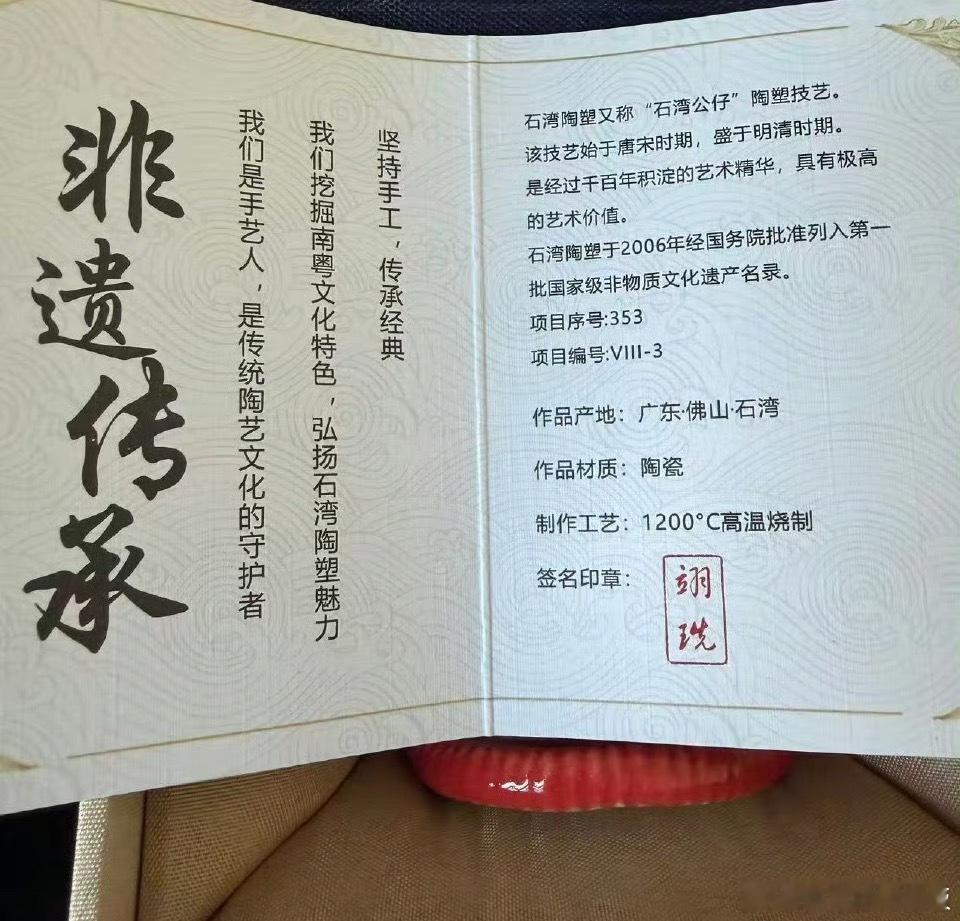 非遗传承
我们是手艺人，是传统陶艺文化的守护者
我们挖掘南粤文化特色，弘扬石湾陶塑魅力
坚持手工，传承经典
石湾陶塑又称“石湾公仔”陶塑技艺。
该技艺始于唐宋时期，盛于明清时期。
是经过千百年积淀的艺术精华，具有极高
的艺术价值。
石湾陶塑于2006年经国务院批准列入第一
批国家级非物质文化遗产名录。
项目序号:353
项目编号:VIII-3
作品产地：广东·佛山·石湾
作品材质：陶瓷
制作工艺：1200°C高温烧制
签名印章：
翊
珗